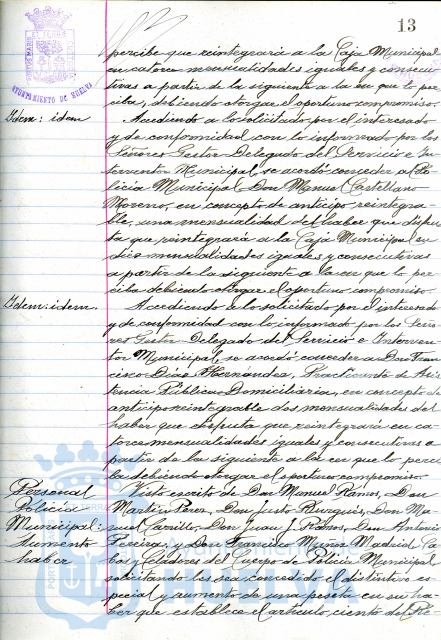 13
AYUNTAMIENTO DE HUELVA
percibe que reintegrará a la Caja Municipal
en catorce mensualidades iguales y consecu-
tivas a partir de la siguiente a la en que lo per-
ciba, debiendo otorgar el oportuno compromiso.
Idem: idem
Accediendo a lo solicitado por el interesado
y de conformidad con lo informado por los
Señores Gestor Delegado del Servicio e In-
terventor Municipal, se acordó conceder a Po-
licia Municipal Don Manuel Castellano
Moreno, en concepto de anticipo reintegra-
ble, una mensualidad del haber que disfru-
ta que reintegrará a la Caja Municipal en
diez mensualidades iguales y consecutivas
a partir de la siguiente a la en que lo per-
ciba debiendo otorgar el oportuno compromiso.
Idem: idem.
Accediendo a lo solicitado por el interesado
y de conformidad con lo informado por los Seño-
res Gestor Delegado del Servicio e Interven-
tor Municipal se acordó conceder a Don Fran-
cisco Díaz Hernández, Practicante de Asis-
tencia Pública Domiciliaria, en concepto de
anticipo reintegrable dos mensualidades del
haber que disfruta que reintegrará en ca-
torce mensualidades iguales y consecutivas a
partir de la siguiente a la en que lo perci-
ba debiendo otorgar el oportuno compromiso.
Personal
Policia
Municipal:
Aumento
haber
Visto escrito de Don Manuel Ramos, Don
Martín Perez, Don Justo Burgués, Don Ma-
nuel Carrillo, Don Juan J. Franco, Don Antonio
Pereira y Don Francisco Muñoz Madrid Ca-
bos y Celadores del Cuerpo de Policia Municipal
solicitando les sea concedido el distintivo es-
pecial y aumento de una peseta en su ha-
ber que establece el artículo ciento del Re-